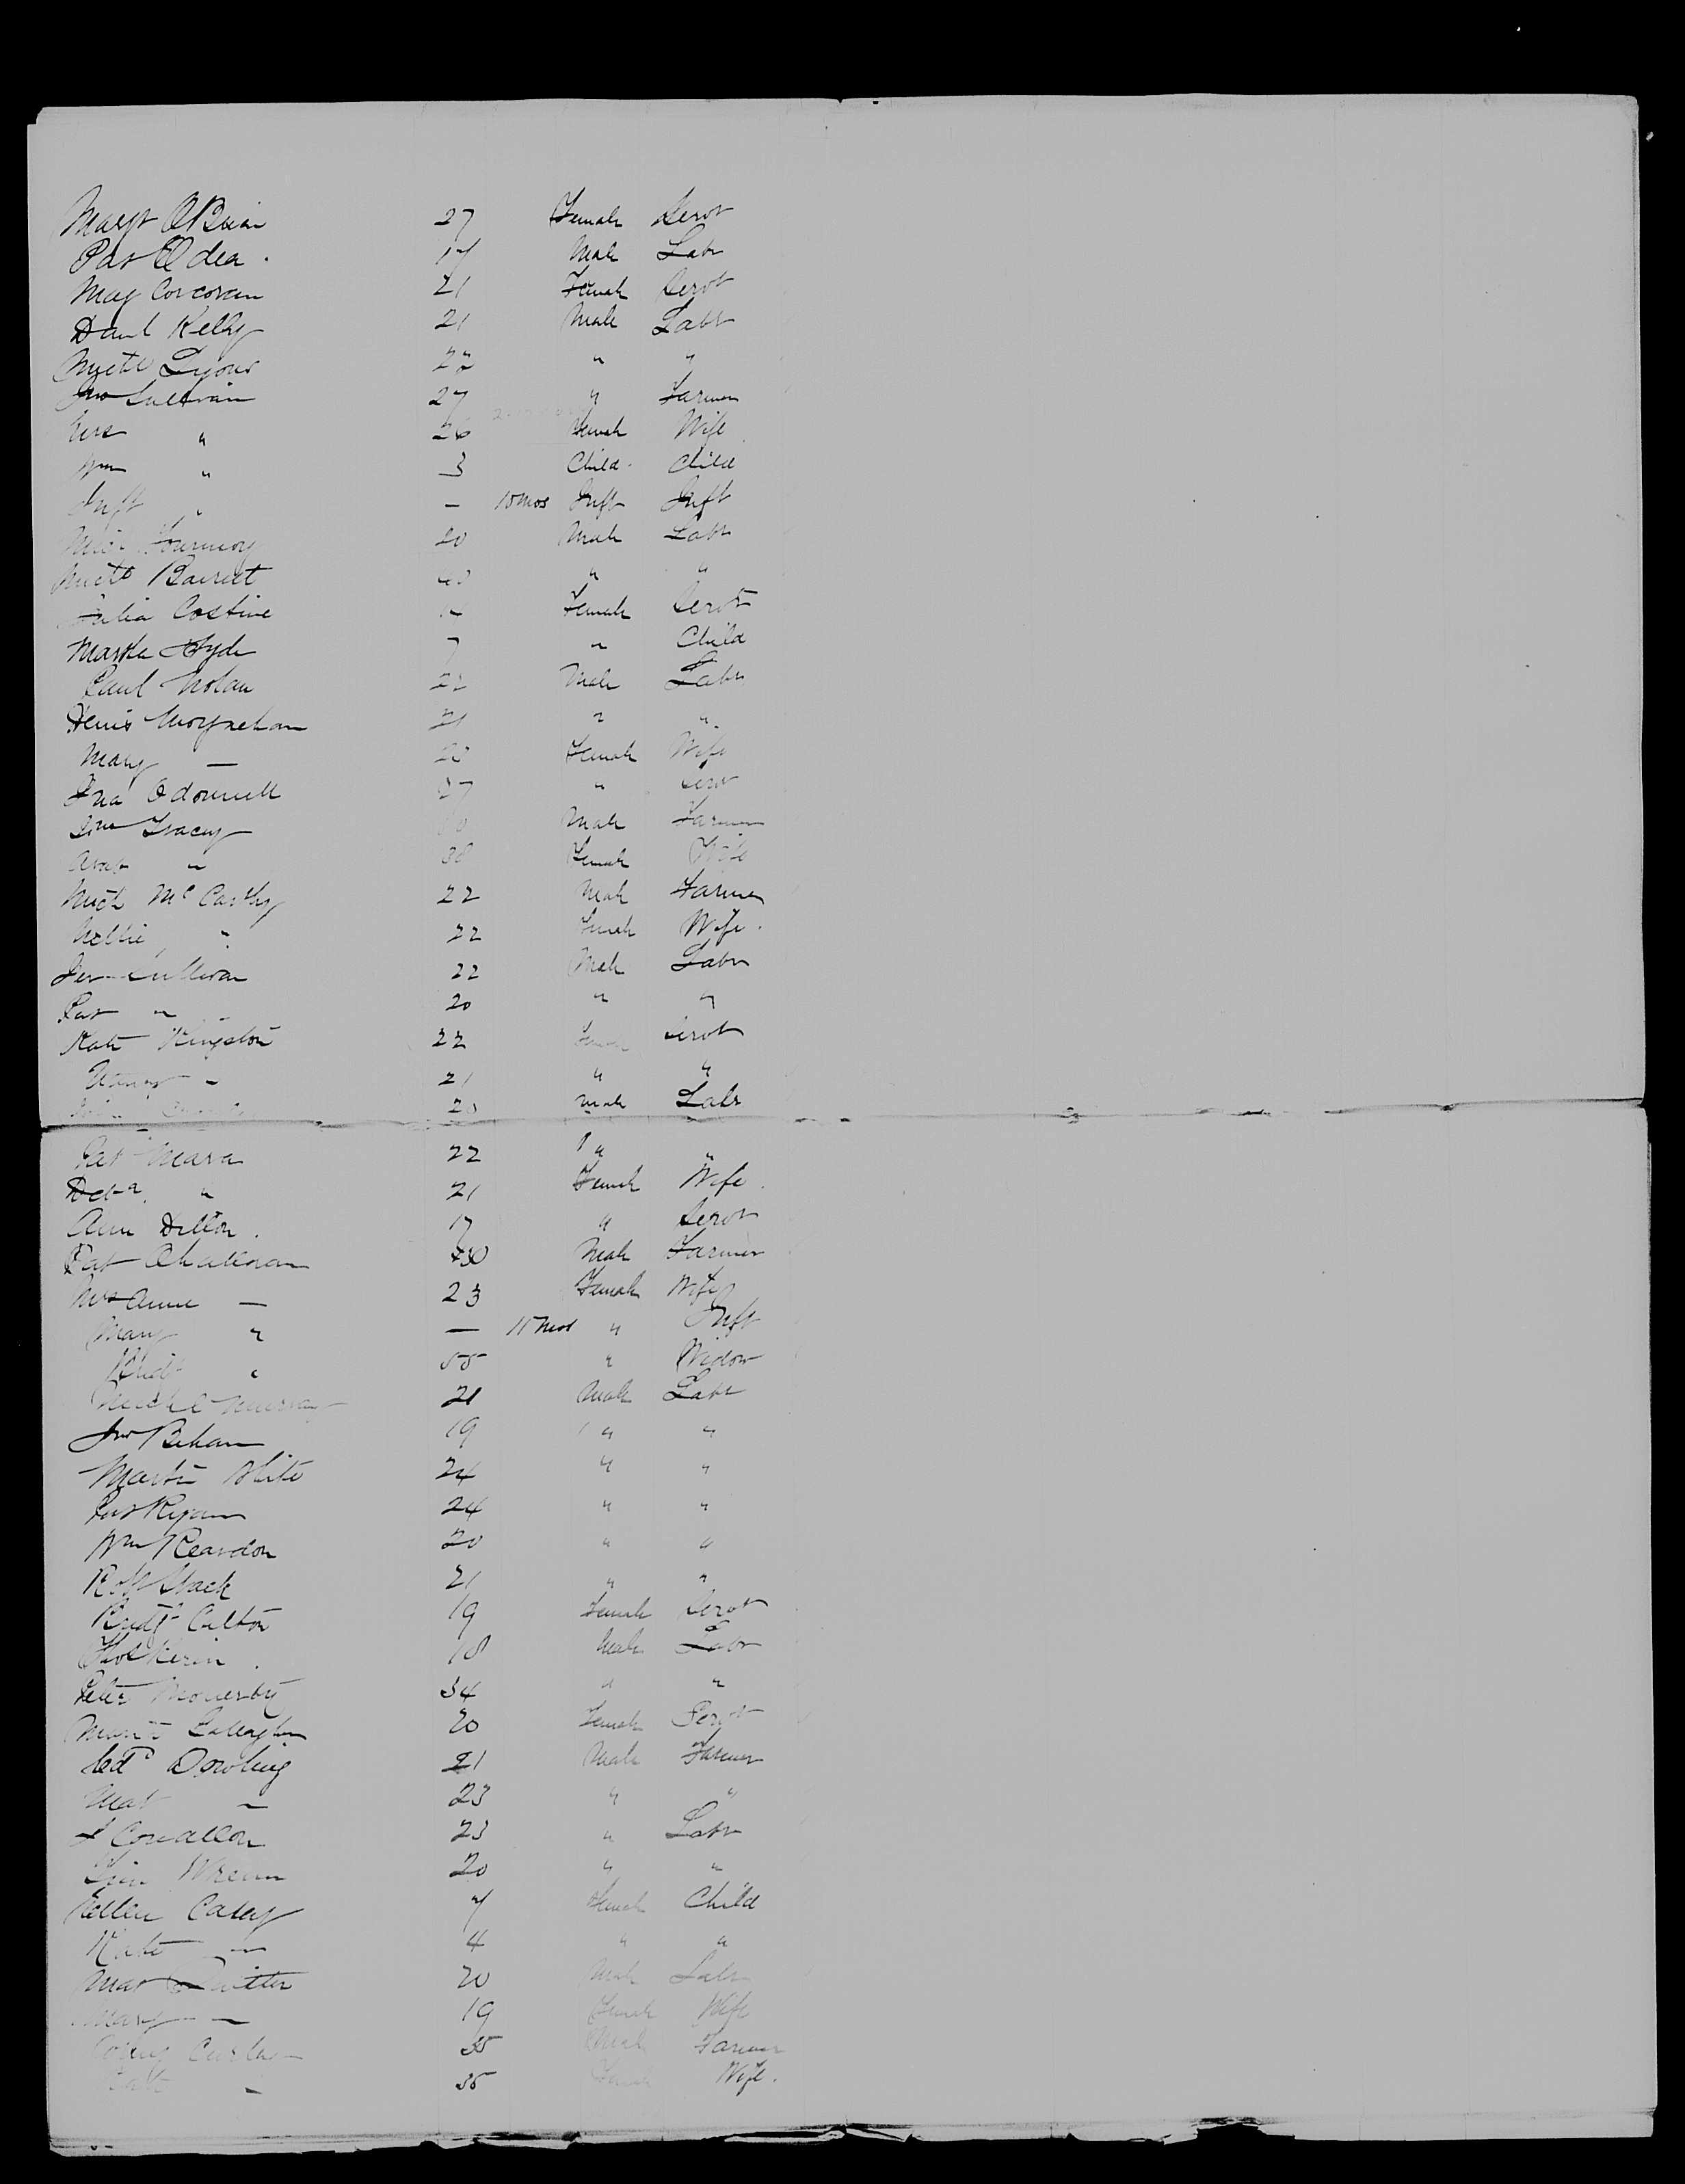 Margt OBrien 27 Female Servt
Pat Odea. 17 Male Labr
Mary Corcoran 21 Female Servt
Danl Kelly 21 Male Labr
Michl Lyons 22 " "
Jno Sullivan 27 " Farmer
Mrs " 26 Female Wife
Wm " 3 Child. Child
Inft " — 10 mos Inft Inft
20 Male Labr
Michl Barrett 40 " "
Julia Costine Female Servt
Martha Hyde 7 " Child
Paul Nolan 22 Male Labr
Denis Moynehan 21 " ".
Mary — 20 Female Wife
Odonnell 27 " Servt
Tracey Male Farmer
" 38 Female Wife
Mich McCarthy 22 Male Farmer
Nellie " 22 Female Wife.
Jer Sullivan 22 Male Labr
Pat " 20 " "
Kate Kingston 22 Female Servt
" 21 " "
20 Male Labr
Pat Meara 22 " "
" 21 Female Wife.
Ann Dillon. 17 " Servt
Pat Ohalloran 30 Male Farmer
Mrs Annie — 23 Female Wife
Mary " — 11 mos " Inft
Bridt " 55 " Widow
Michl Murray 21 Male Labr
Jno Behan 19 " "
Martin White 24 " "
Pat Ryan 24 " "
Wm Reardon 20 " "
Robt Stack 21 " "
Bridt Culton 19 Female Servt
Thos Kerin. 18 Male Labr
Peter Moriarty 34 " "
Callaghan 20 Female Servt
Edd Dowling 21 Male Farmer
Mat — 23 " "
J Conallon 23 " Labr
Tim Whelan 20 " "
Ellen Casey 7 Female Child
Kate — 4 " "
20 Male Labr
Mary — 19 Female Wife
35 Male Farmer
Kate " 35 Female Wife.